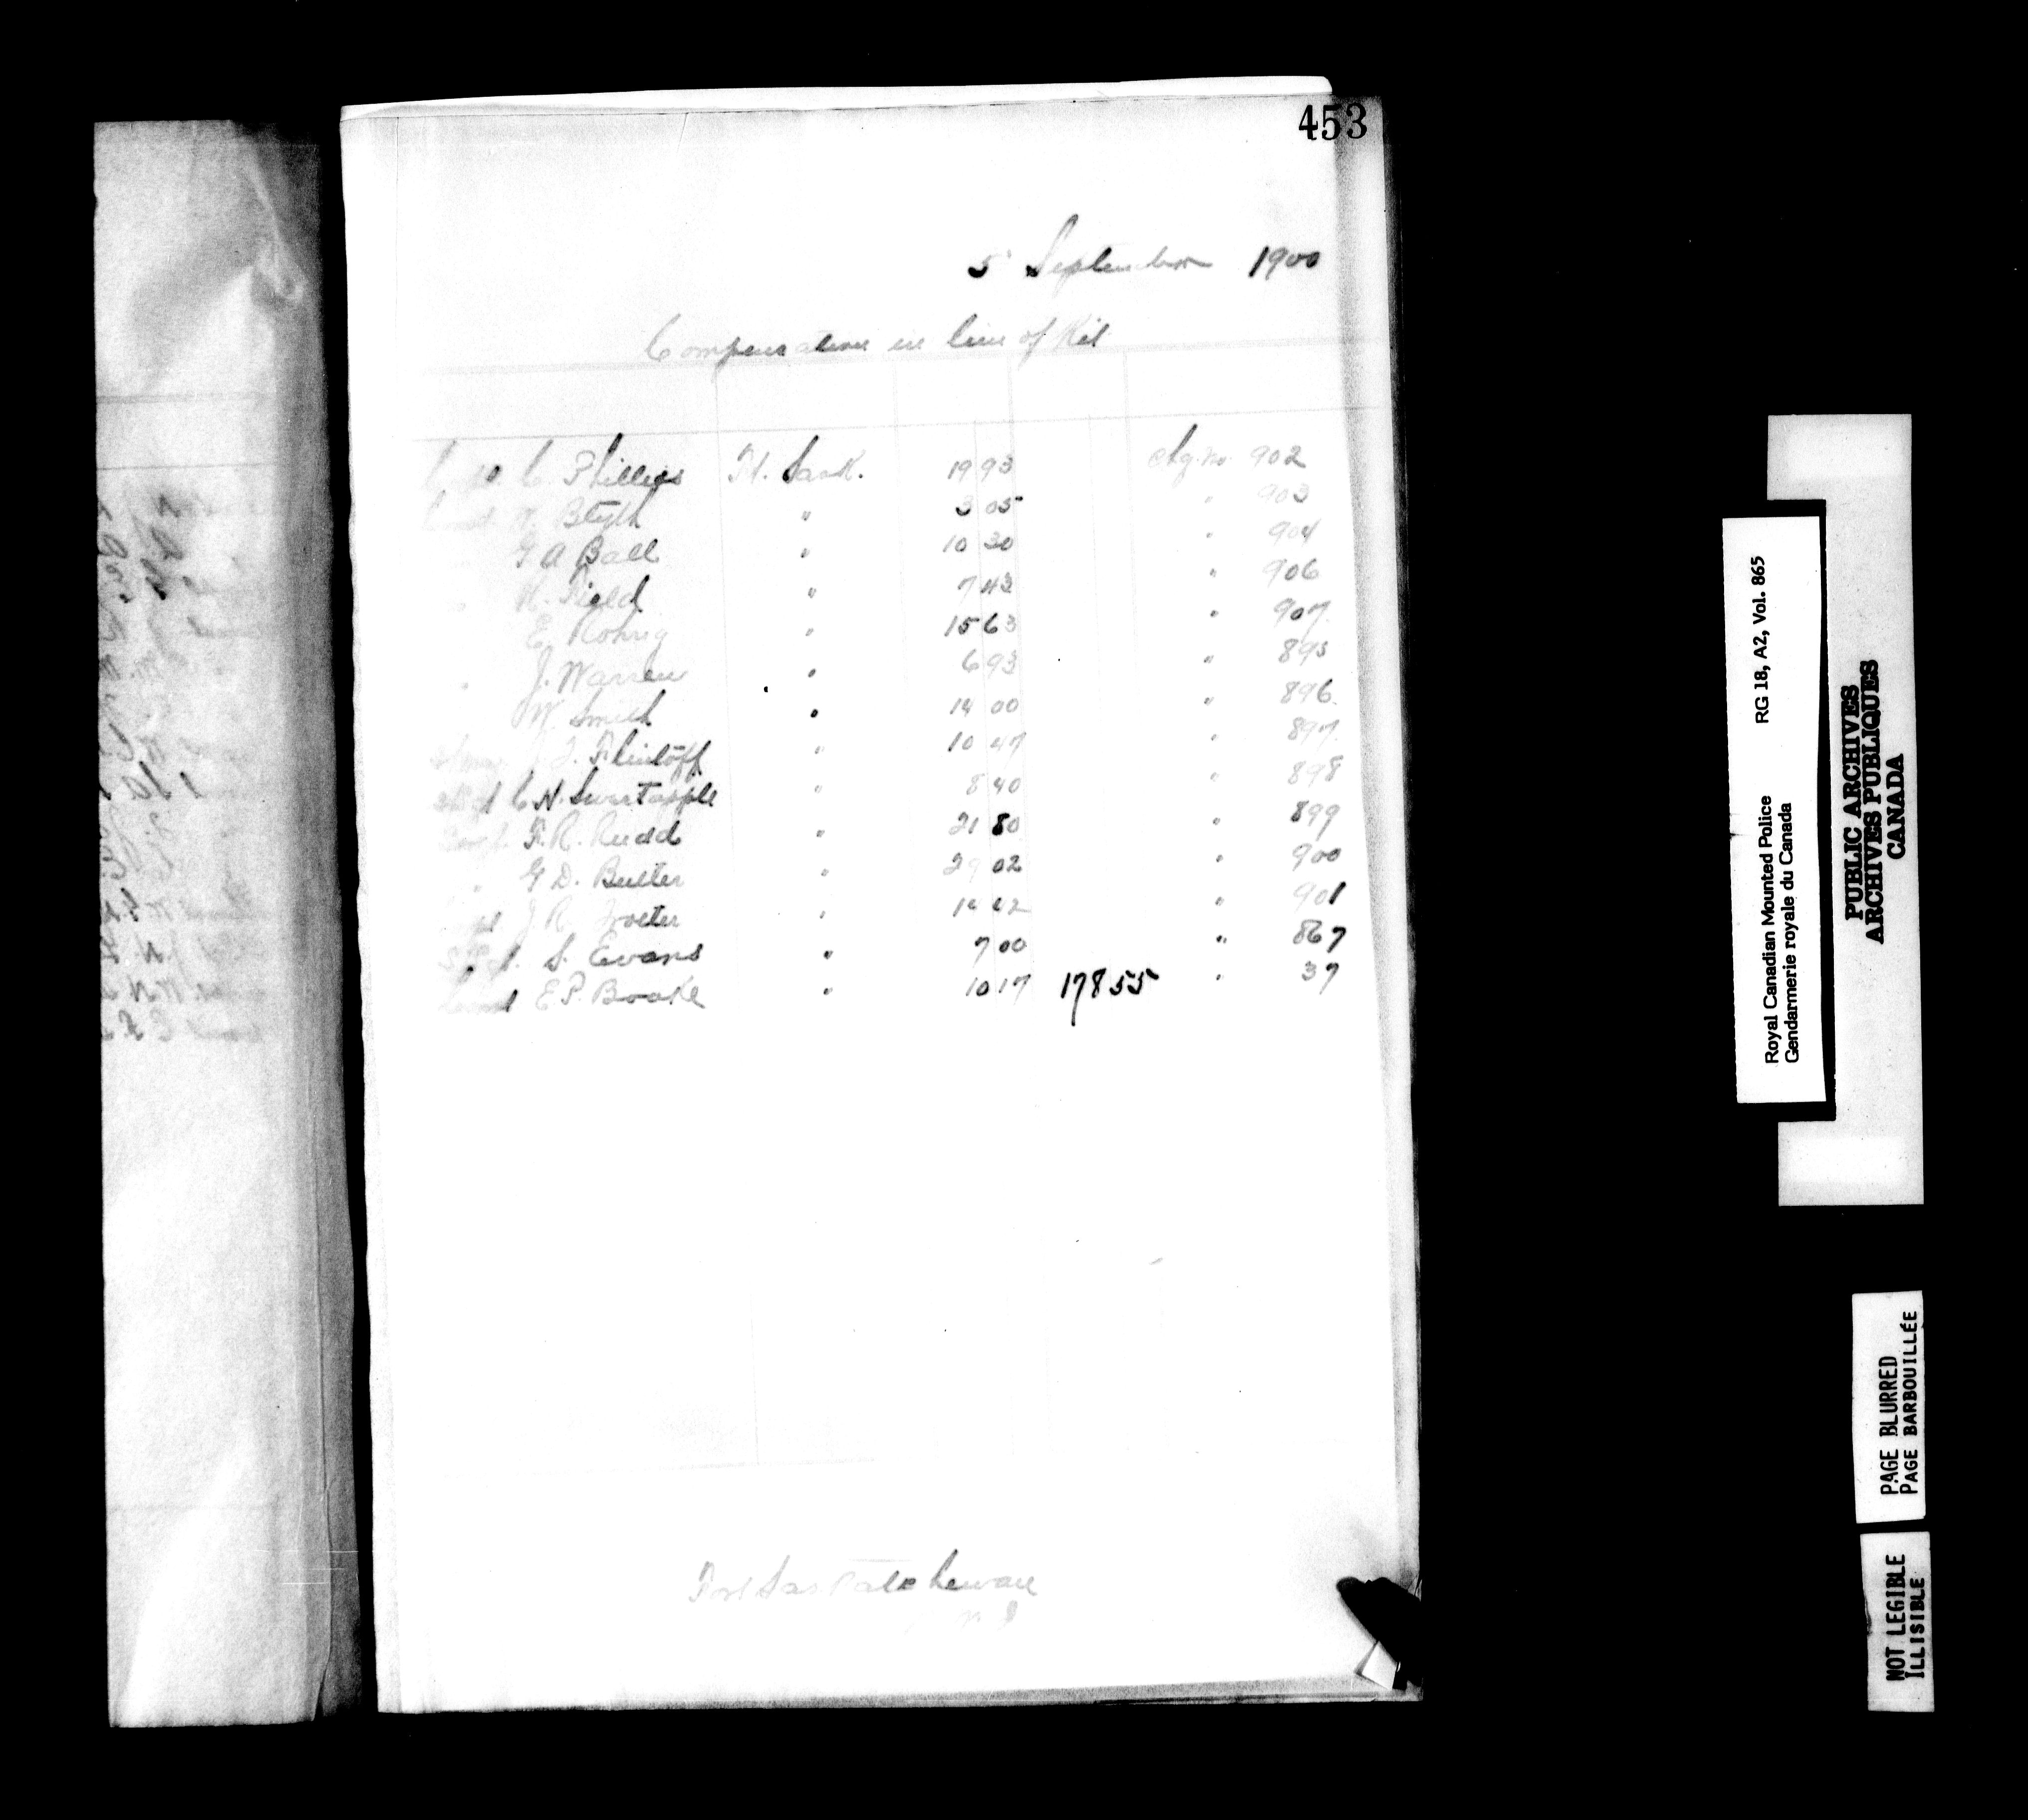 453
5 September 1900
Compensation in lieu of Kit
Corpl C. Phillips Ft. Sask. 19 93 Chq. No 902
Const. H. Blyth " 3 05 " 903
G A Ball " 10 30 " 904
H. Field " 7 43 " 906
E. Rohrig " 15 63 " 907
" J. Warren " 6 93 " 895
W. Smith " 14 00 " 896
J. Flintoff " 10 47 " 897
C. N. Sweetapple " 8 40 " 898
Const. F. R. Rudd " 21 80 " 899
" G D. Butler " 29 02 " 900
J R. " " 901
S. Evans " 7 00 " 867
Const E. P. Brooke " 10 17 178 55 " 37
Fort Saskatchewan
Royal Canadian Mounted Police RG 18, A2, Vol. 865
Gendarmerie royale du Canada
PUBLIC ARCHIVES
ARCHIVES PUBLIQUES
CANADA
PAGE BLURRED
PAGE BARBOUILLÉE
NOT LEGIBLE
ILLISIBLE